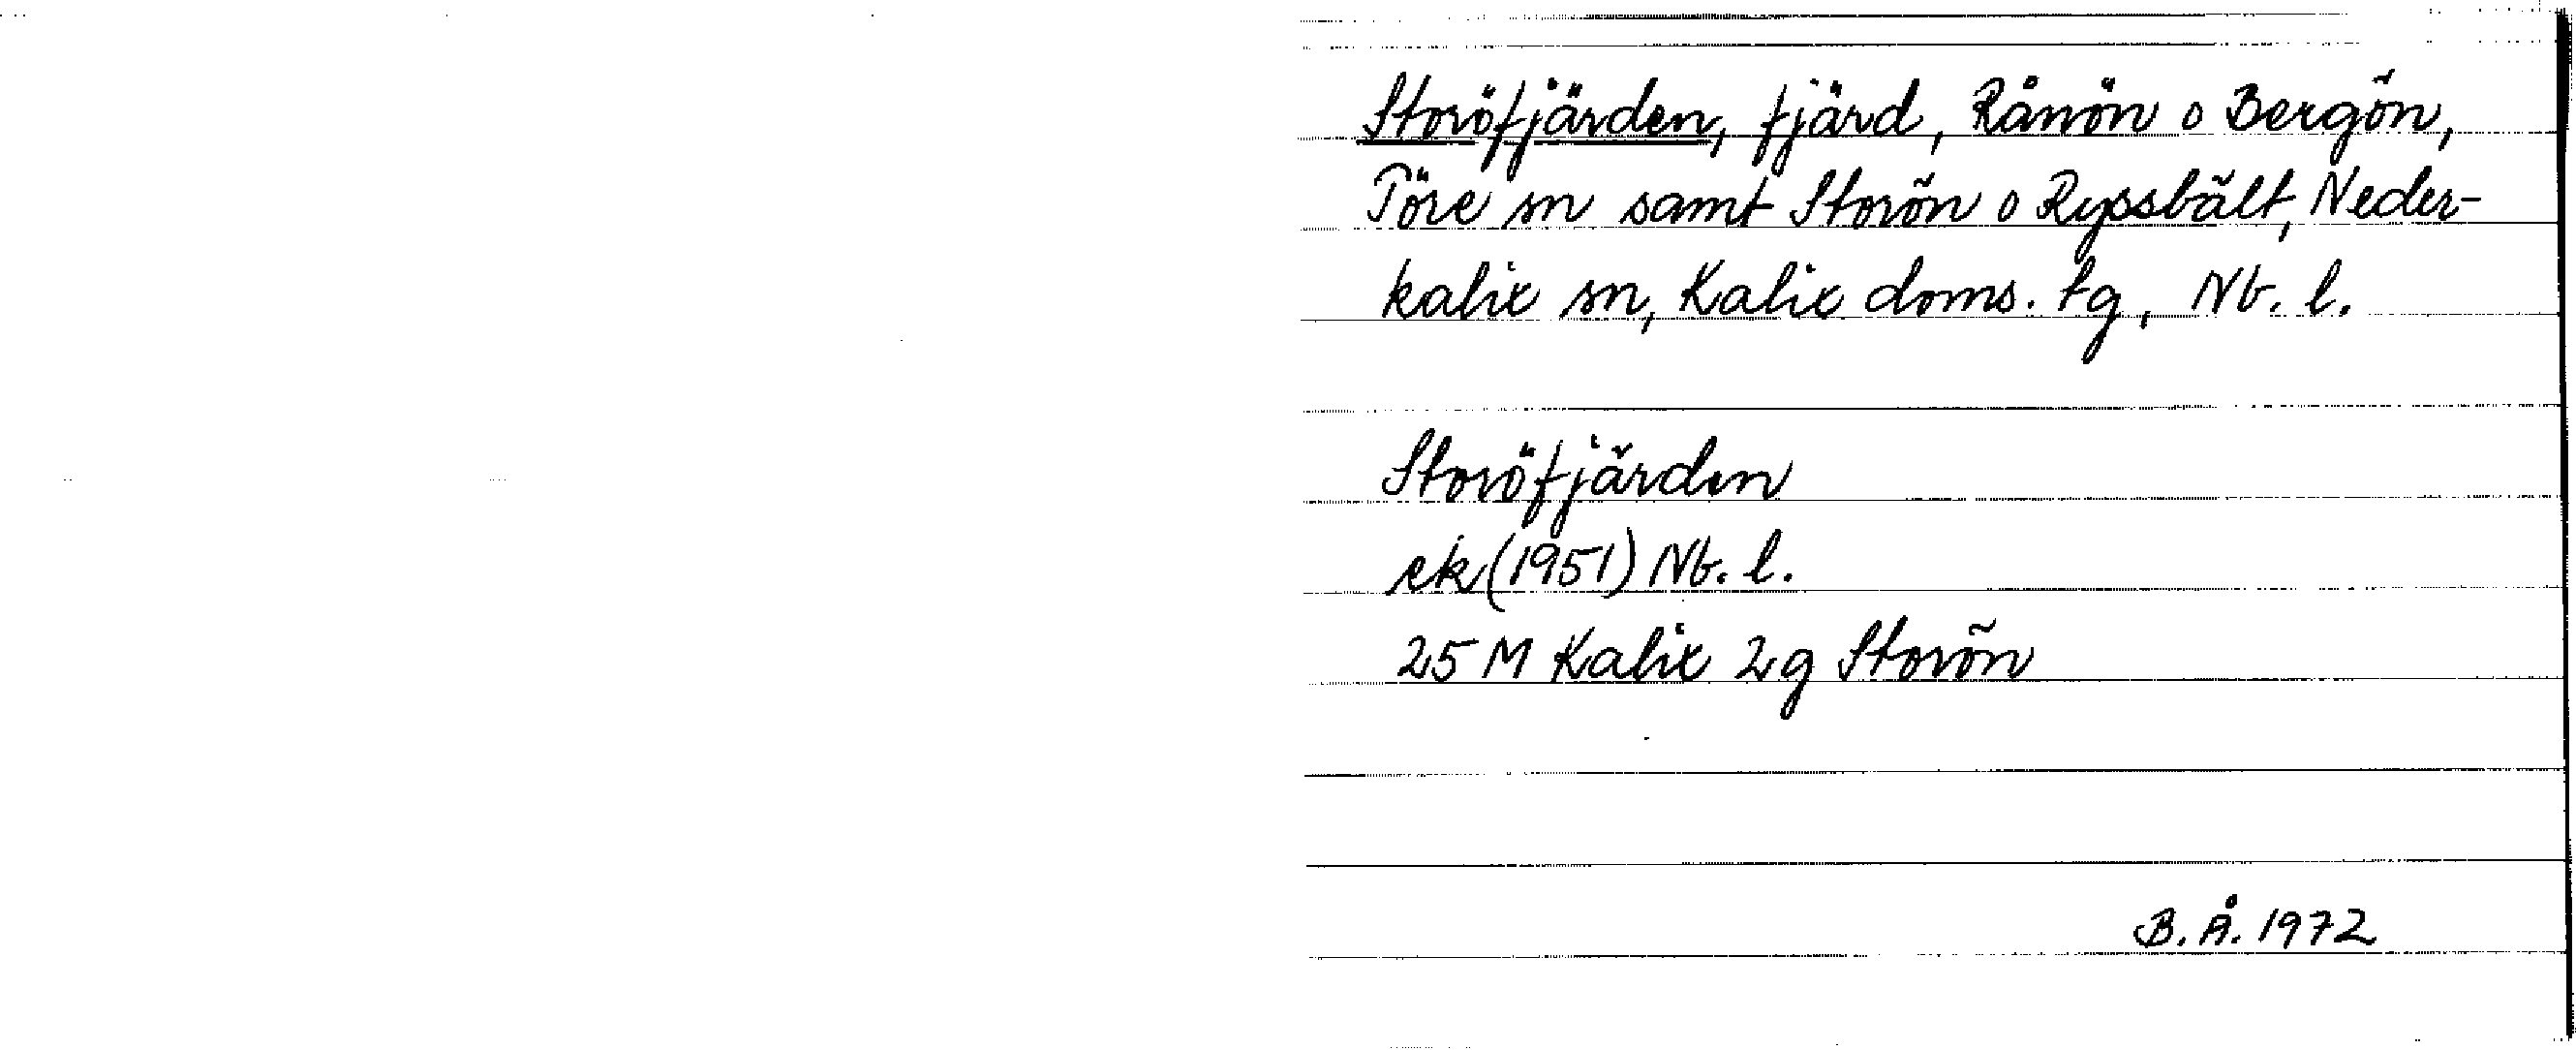 Storöfjärden, fjärd, Rånön o Bergön,
Töre sn samt Storön o Ryssbält, Neder-
kalix sn, Kalix doms. tg, Nb. l.
Storöfjärden
ek (1951) Nb. l.
25 M Kalix 2g Storön
B. Å. 1972